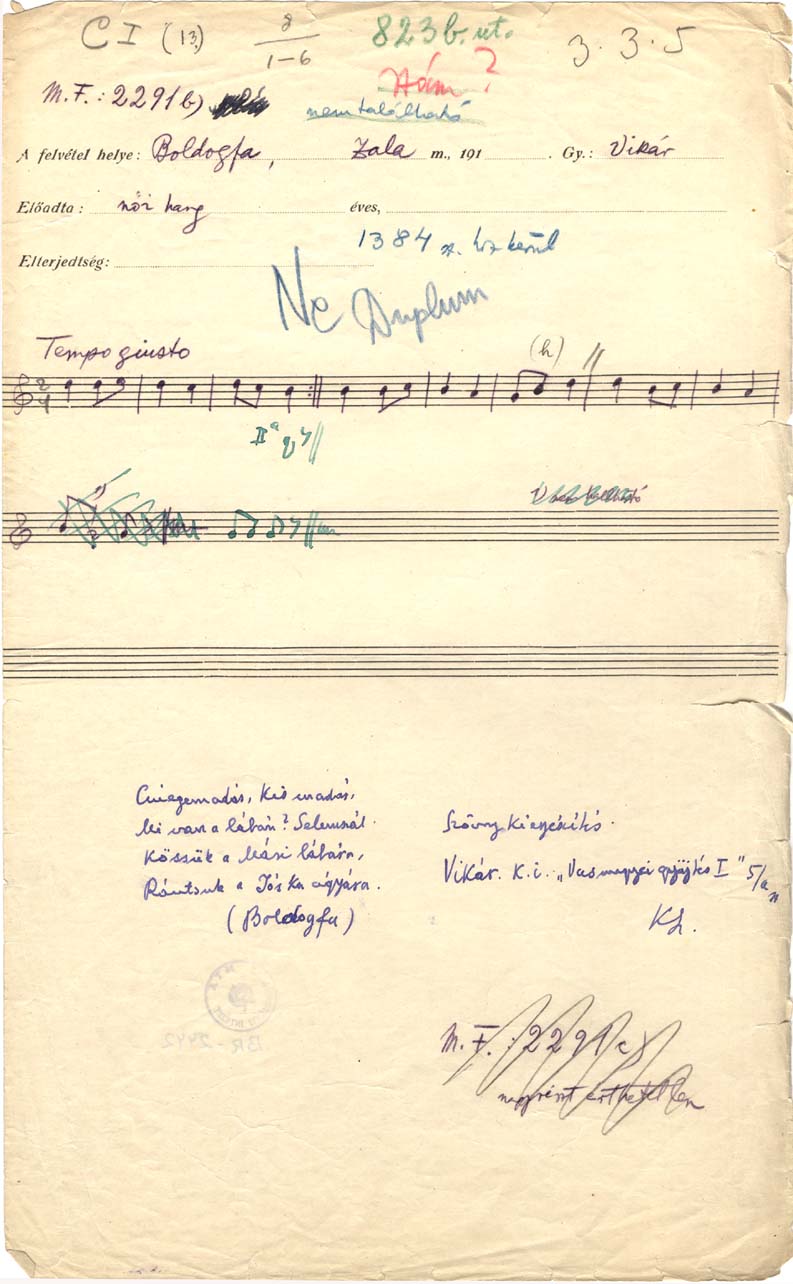 C I (13.) 8/1–6 823b. ut. 3. 3. 5
Hám?
M. F.: 2291 b)
nem található
A felvétel helye: Boldogfa, Zala m., 191 . Gy.: Vikár
Előadta: női hang éves,
1384 sz. hz kerül
Elterjedtség:
Ne Duplum
Tempo giusto
(h)
2/4
IIª
Csiegemadár, kis madár,
Mi van a lábán? Selemszál.
Kössük a Mári lábára,
Rántsuk a Jóska ágyára.
(Boldogfa)
Szöveg kiegészítő.
Vikár. K. i. „Vasmegyei gyűjtés I" 5/a
M. F.: 2291 c)
nagyrészt érthetetlen
BR-2442